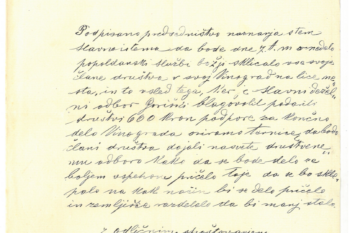 Podpisano predsedništvo naznanja s tem
slavno istemu da bode dne 7. t. m. 
popoldanski službi božji sklicalo vse svoje
člane društva v svoj Vinograd na lice me
sta, in to vsled tega, ker c. slavni dežel
ni odbor Goriški blagovolil podeliti
društvu 600 kron podpore za končno
delo Vinograda oziroma 
člani društva dajali nasvete društvene
mu odboru kako da se bode delo 
boljem vspehom pričelo toje da se bo skle
palo na kak način bi se delo pričelo
in zemljišče razdelilo da bi manj stalo
Z odličnim spoštovanjem